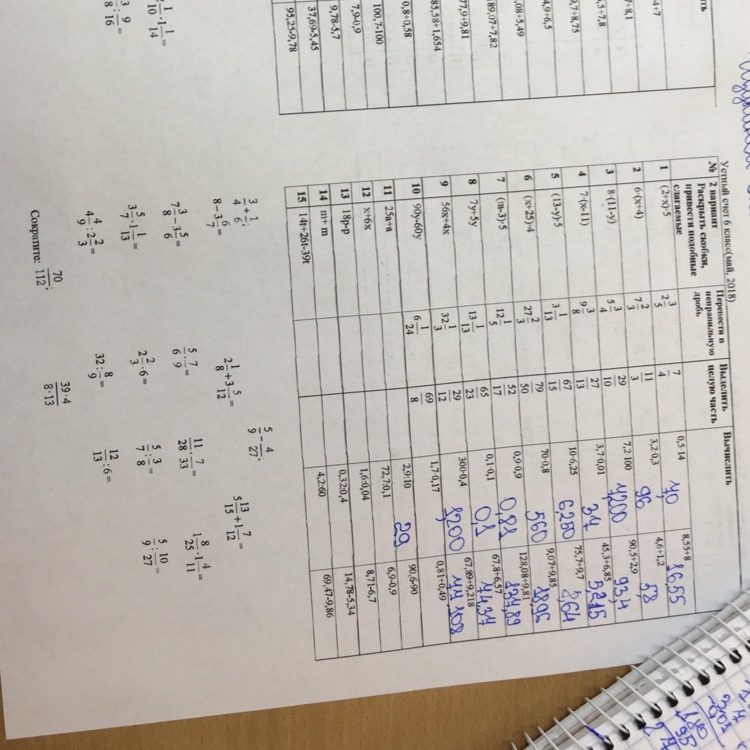 Устный счет 6 класс(май, 2018)
№ 2 вариант Раскрыть скобки, привести подобные слагаемые | Перевести в неправильную дробь | Выделить целую часть | Вычислить
1 (2+x)·5 | 2 3/5 | 7/4 | 0,5·14 7,0 | 8,55+8 16,55
2 6·(x+4) | 7 2/3 | 11/3 | 3,2·0,3 96 | 4,6+1,2 5,8
3 8·(11-y) | 5 3/4 | 29/10 | 7,2·100 7,200 | 90,5+2,9 93,4
4 7·(x-11) | 9 3/8 | 27/13 | 3,7·0,01 | 45,3+6,85
5 (13-y)·5 | 3 1/13 | 67/15 | 10·6,25 6,250 | 75,7+9,7
6 (x+25)·4 | 27 2/3 | 79/50 | 70·0,8 560 | 9,07+9,85 18,95
7 (m-3)·5 | 12 1/5 | 52/17 | 0,9·0,9 0,81 | 128,08+9,81
8 7y+5y | 13 1/13 | 65/23 | 0,1·0,1 0,1 | 67,8+6,57 74,37
9 56x+4x | 32 1/3 | 29/12 | 300·0,4 1,200 | 67,89+9,218 77,108
10 90y-60y | 6 1/24 | 69/8 | 1,7·0,17 | 0,81+0,49
11 25a+a | 2,9:10 29 | 90,6-90
12 x+6x | 72,7:0,1 | 6,9-0,9
13 18p-p | 1,6:0,04 | 8,71-6,7
14 m+ m | 0,32:0,4 | 14,78-5,34
15 14t+26t-39t | 4,2:60 | 69,47-9,86
3/4 + 1/6; 2 1/8 + 3 5/12 5/9 - 4/27; 5 13/15 + 1 7/12
8 - 3 6/7; 5/6 : 7/9 11/28 · 7/33 1 8/25 · 1 4/11 =
7 3/8 - 3 5/6 = 2 2/3 · 6 = 5/7 : 3/8 = 5/9 : 10/27 =
3 5/7 · 1 1/13 = 32 : 8/9 = 12/13 : 6 =
4 4/9 : 2 2/3 =
Сократите: 70/112; 39·4/8·13
4+7
7+8,1
,5+7,8
,7+8,75
,4,9+6,5
,08+5,49
89,07+7,82
77,9+9,81
85,58+1,654
0,8+0,58
100,7-100
7,9-0,9
9,78-5,7
37,69-5,45
95,25-9,78